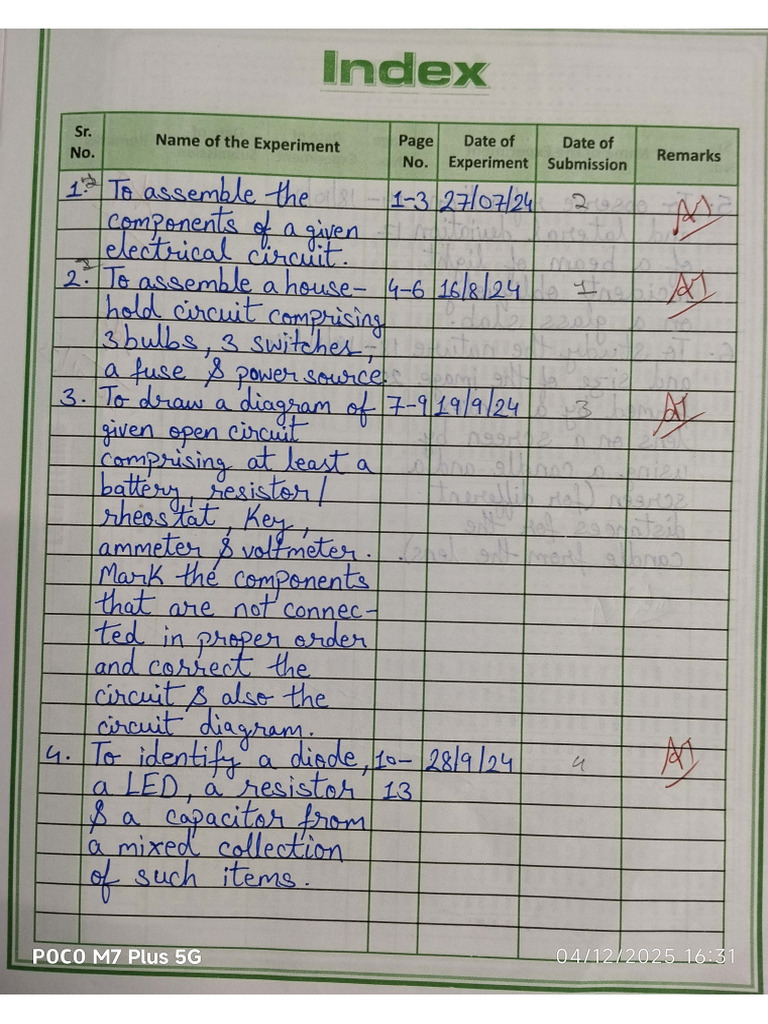 Index
Sr. No. Name of the Experiment Page No. Date of Experiment Date of Submission Remarks
1. To assemble the 1-3 27/07/24 2
components of a given
electrical circuit.
2. To assemble a house- 4-6 16/8/24 1
hold circuit comprising
3 bulbs, 3 switches,
a fuse & power source.
3. To draw a diagram of 7-9 19/9/24 3
given open circuit
comprising at least a
battery, resistor/
rheostat, Key,
ammeter & voltmeter.
Mark the components
that are not connec-
ted in proper order
and correct the
circuit & also the
circuit diagram.
4. To identify a diode, 10- 28/9/24 4
a LED, a resistor 13
& a capacitor from
a mixed collection
of such items.
POCO M7 Plus 5G 04/12/2025 16:31